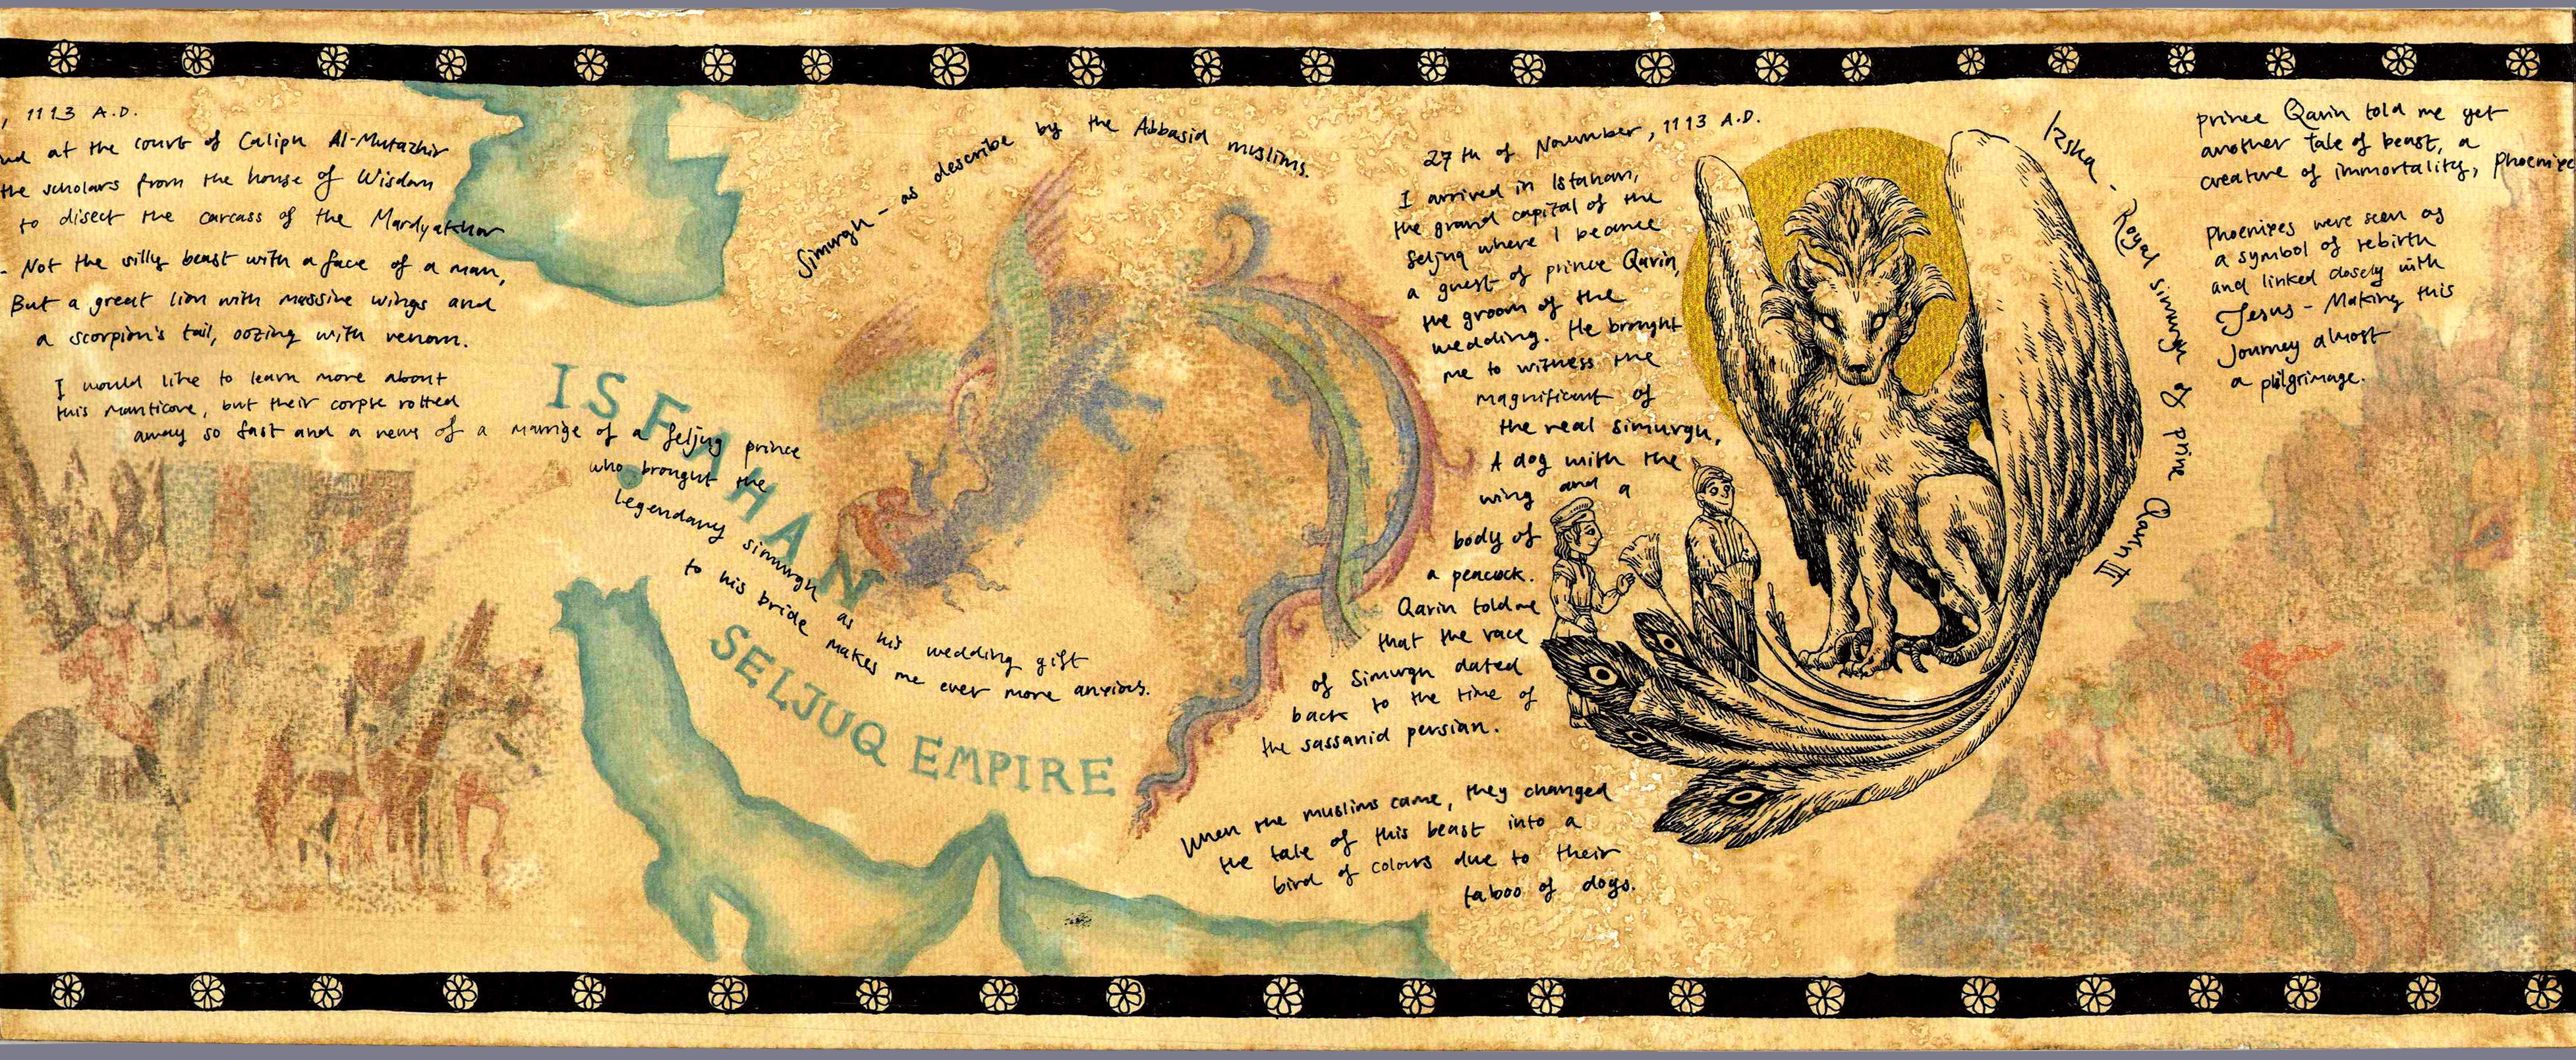 , 1113 A.D.
at the court of Caliph Al-Mutazhir
the scholars from the house of Wisdom
to disect the carcass of the Mardyakhor
- Not the silly beast with a face of a man,
But a great lion with massive wings and
a scorpion's tail, oozing with venom.
I would like to learn more about
this manticore, but their corpse rotted
away so fast and a news of a marrige of a Seljuq prince
who brought the
legendary simurgh as his wedding gift
to his bride makes me ever more anxious.
ISFAHAN
SELJUQ EMPIRE
Simurgh - as describe by the Abbasid muslims.
27th of November, 1113 A.D.
I arrived in Isfahan,
the grand capital of the
Seljuq where I became
a guest of prince Qarin,
the groom of the
wedding. He brought
me to witness the
magnificant of
the real simurgh,
A dog with the
wing and a
body of
a peacock.
Qarin told me
that the race
of Simurgh dated
back to the time of
the sassanid persian.
When the muslims came, they changed
the tale of this beast into a
bird of colours due to their
taboo of dogs.
Izsha - Royal simurgh of prine Qarin III
prince Qarin told me yet
another tale of beast, a
creature of immortality,
Phoenixes were seen as
a symbol of rebirth
and linked closely with
Jesus - Making this
Journey almost
a pilgrimage.